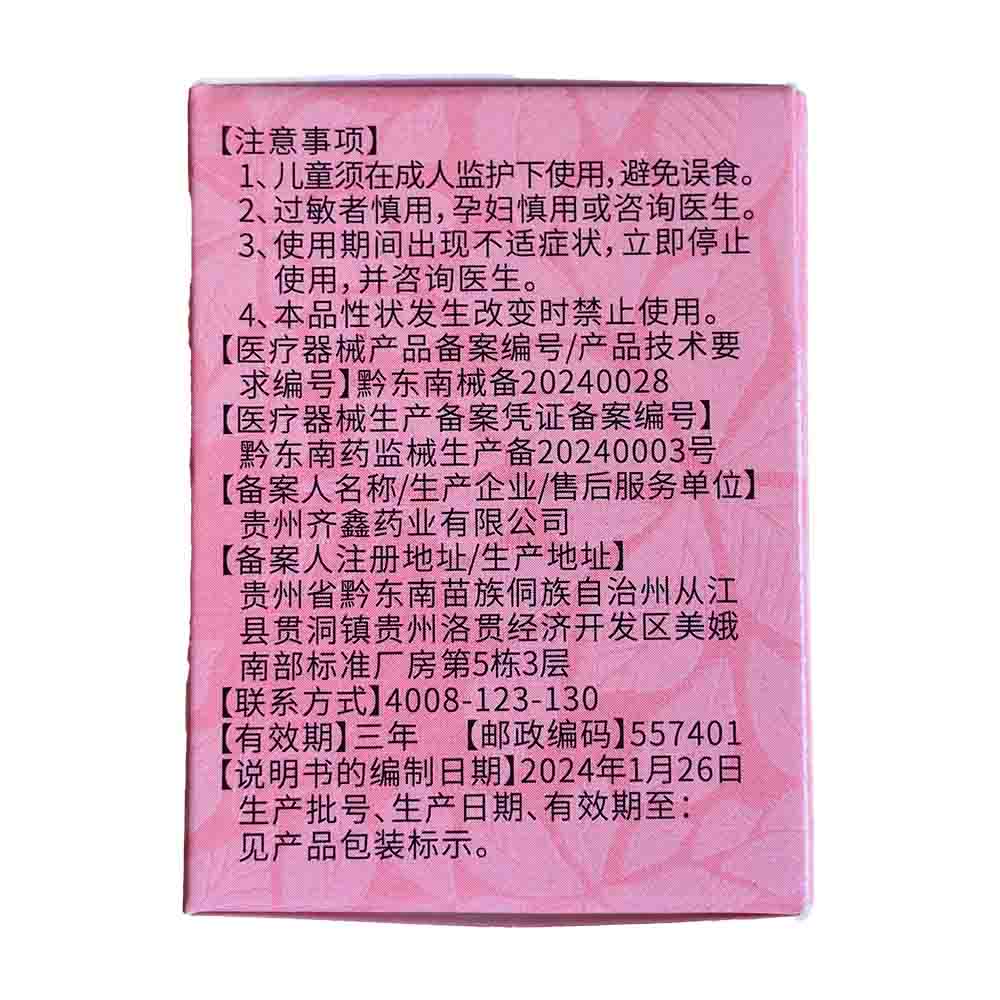 【注意事项】
1、儿童须在成人监护下使用,避免误食。
2、过敏者慎用,孕妇慎用或咨询医生。
3、使用期间出现不适症状,立即停止
使用,并咨询医生。
4、本品性状发生改变时禁止使用。
【医疗器械产品备案编号/产品技术要
求编号】黔东南械备20240028
【医疗器械生产备案凭证备案编号】
黔东南药监械生产备20240003号
【备案人名称/生产企业/售后服务单位】
贵州齐鑫药业有限公司
【备案人注册地址/生产地址】
贵州省黔东南苗族侗族自治州从江
县贯洞镇贵州洛贯经济开发区美娥
南部标准厂房第5栋3层
【联系方式】4008-123-130
【有效期】三年 【邮政编码】557401
【说明书的编制日期】2024年1月26日
生产批号、生产日期、有效期至:
见产品包装标示。